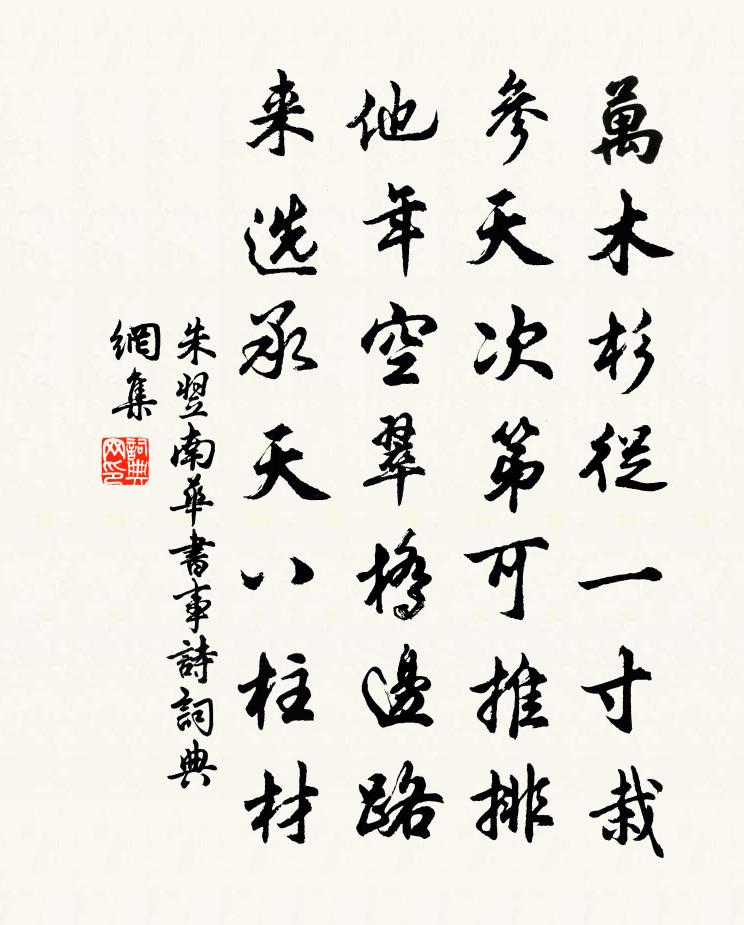 萬木杉從一寸栽
參天次第可推排
他年空翠橋邊路
来选承天八柱材
朱翌南華書事詩詞典
網集
詞典網印